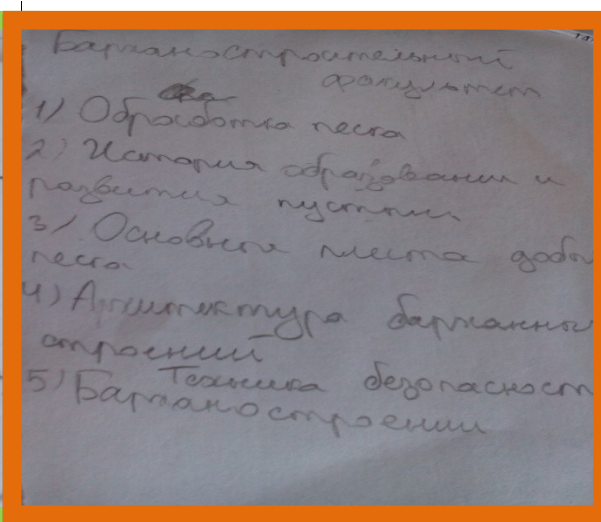 Барханостроительный
факультет
1) Обработка песка
2) История образования и
развития пустынь
3) Основные места добы
песка
4) Архитектура барханны
строений
5) Техника безопасност
Барханостроении